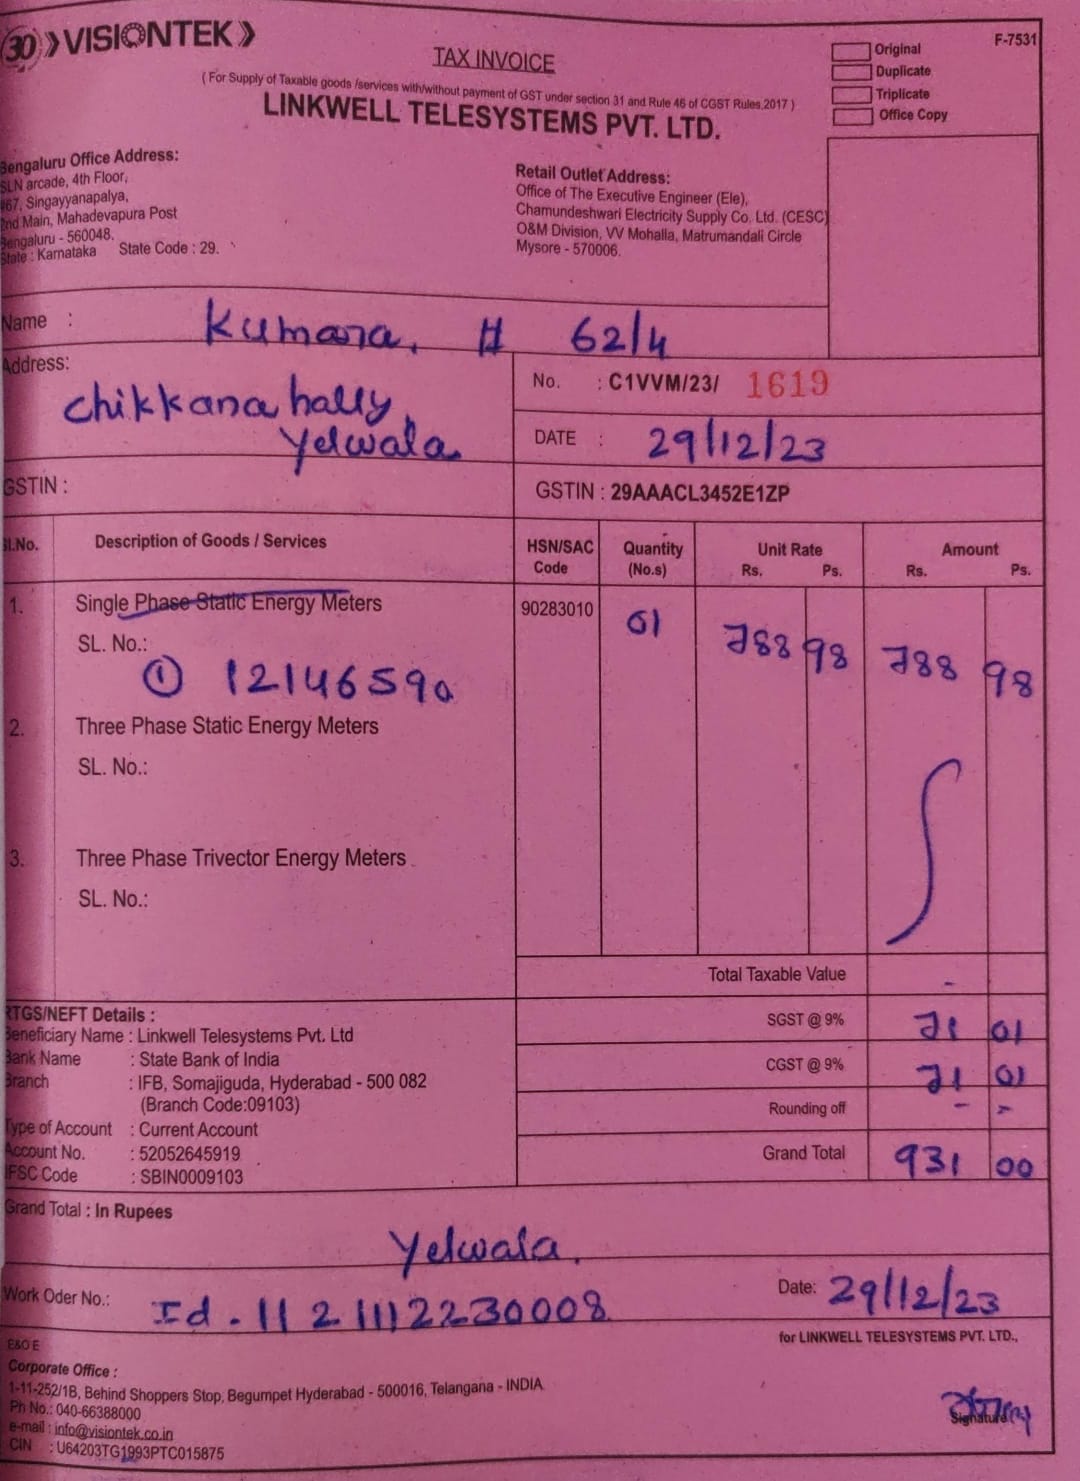 30 VISIONTEK
F-7531
TAX INVOICE
Original
Duplicate
Triplicate
Office Copy
( For Supply of Taxable goods /services with/without payment of GST under section 31 and Rule 46 of CGST Rules,2017 )
LINKWELL TELESYSTEMS PVT. LTD.
Bengaluru Office Address:
SLN arcade, 4th Floor,
#67, Singayyanapalya,
2nd Main, Mahadevapura Post
Bengaluru - 560048.
State : Karnataka State Code : 29.
Retail Outlet Address:
Office of The Executive Engineer (Ele),
Chamundeshwari Electricity Supply Co. Ltd. (CESC)
O&M Division, VV Mohalla, Matrumandali Circle
Mysore - 570006.
Name : Kumara. H 62/4
Address: chikkanahally,
Yelwala
No. : C1VVM/23/ 1619
DATE : 29/12/23
GSTIN :
GSTIN : 29AAACL3452E1ZP
Sl.No. Description of Goods / Services HSN/SAC Code Quantity (No.s) Unit Rate Rs. Ps. Amount Rs. Ps.
1. Single Phase Static Energy Meters 90283010 01 788 98 788 98
SL. No.:
① 12146590
2. Three Phase Static Energy Meters
SL. No.:
3. Three Phase Trivector Energy Meters
SL. No.:
Total Taxable Value -
SGST @ 9% 71 01
CGST @ 9% 71 01
Rounding off - -
Grand Total 931 00
RTGS/NEFT Details :
Beneficiary Name : Linkwell Telesystems Pvt. Ltd
Bank Name : State Bank of India
Branch : IFB, Somajiguda, Hyderabad - 500 082
(Branch Code:09103)
Type of Account : Current Account
Account No. : 52052645919
IFSC Code : SBIN0009103
Grand Total : In Rupees
Yelwala.
Work Oder No.: Id - 11211112230008
Date: 29/12/23
E&O E
for LINKWELL TELESYSTEMS PVT. LTD.,
Corporate Office :
1-11-252/1B, Behind Shoppers Stop, Begumpet Hyderabad - 500016, Telangana - INDIA
Ph No.: 040-66388000
e-mail : info@visiontek.co.in
CIN : U64203TG1993PTC015875
Signature